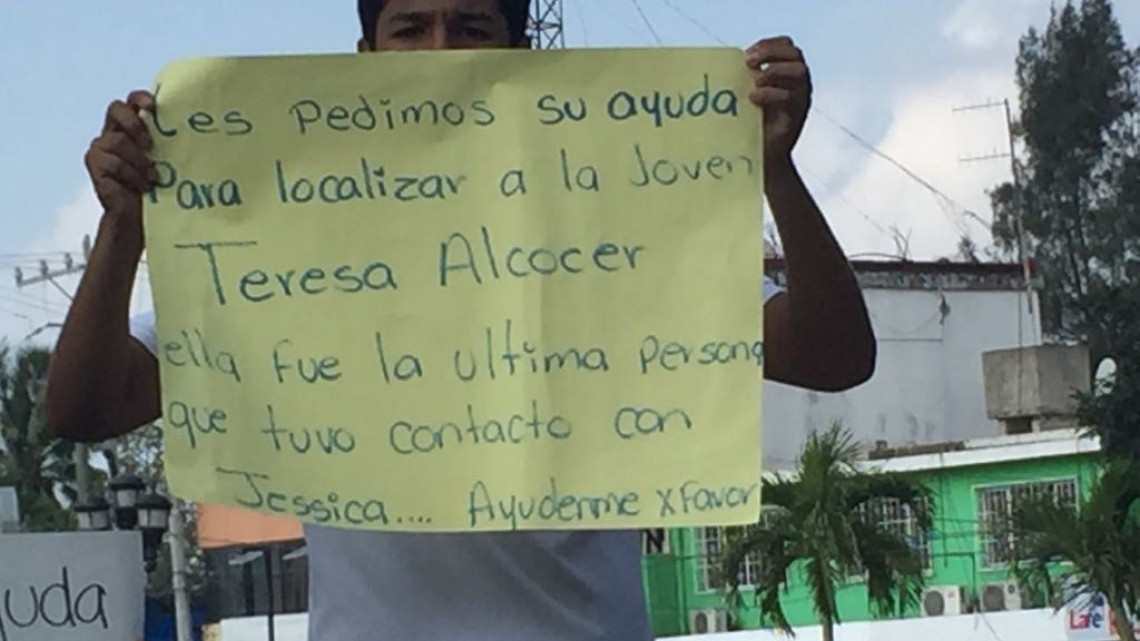 Les pedimos su ayuda
Para localizar a la Joven
Teresa Alcocer
ella fue la ultima persona
que tuvo contacto con
Jessica.... Ayudenme x Favor
uda